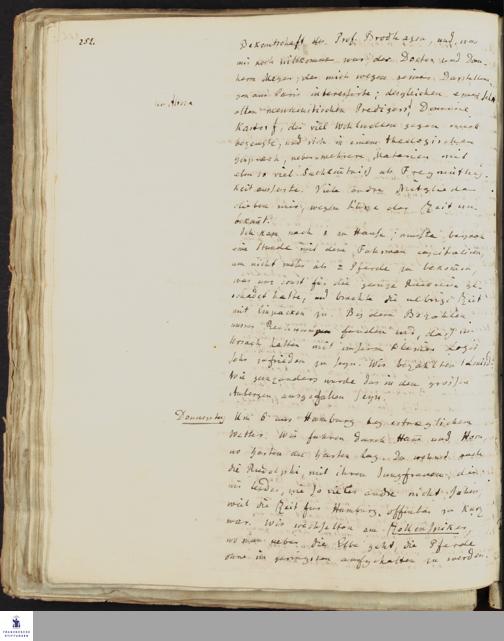 252.
Bekanntschaft des Prof. Brodhagen, und, was
mir noch willkommner war, des Doctor und Dom-
herrn Meyer, der mich wegen seiner Darstellun-
gen aus Paris interessirte; desgleichen eines sehr
alten mennonitischen Predigers,
der viel Wohlwollen gegen mich
bezeugte, und sich in einem theologischen
Gespräch, ueber mehrere Materien mit
eben so viel Sachkentniß als Freymüthig-
keit äusserte. Viele andre Mitglieder
blieben mir, wegen Kürze der Zeit un-
bekant.
Ich kam nach 1 zu Hause; muste beynah
eine Stunde mit dem Fuhrman capituliren,
um nicht mehr als 2 Pferde zu bekomen,
was uns sonst für die ganze Rückreise ge-
schadet hatte, und brachte die uebrige Zeit
mit Einpacken zu. Bey dem Bezahlen
unsrer Rechnungen fanden wir, daß wir
Ursach hatten mit unserm kleinen Logis
sehr zufrieden zu seyn. Wir bezahlten
Wie ganz anders würde das in den grossen
Aubergen ausgefallen seyn.
Donnerstag Um 6 aus Hamburg bey erträglichem
Wetter. Wir fuhren durch Ham und Horn,
wo Garten an Garten lag. Da wohnt auch
die Rudolphi, mit ihren Jungfrauen, die
wir leider, wie so vieles andre nicht sahen,
weil die Zeit für Hamburg offenbar zu kurz
war. Wir wechselten am Zollenspiker,
wo man ueber die Elbe geht, die Pferde
ohne im geringsten aufgehalten zu werden.
FRANCKESCHE
STIFTUNGEN